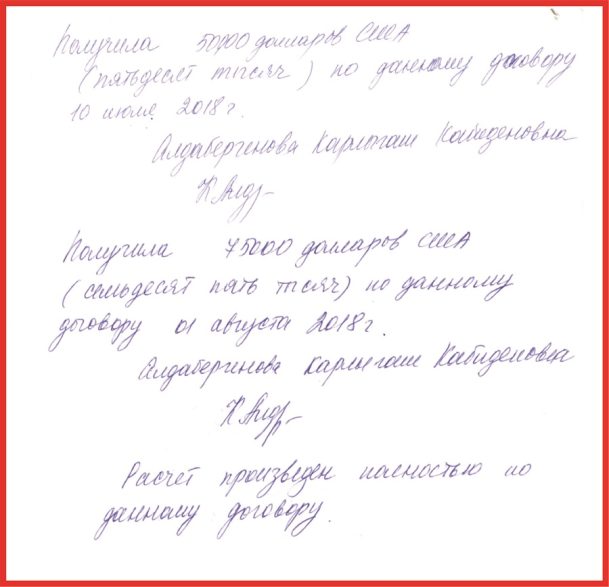 Получила 50000 долларов США
(пятьдесят тысяч) по данному договору
10 июля 2018г.
Алдабергенова Карлыгаш Кабиденовна
Получила 75000 долларов США
(семьдесят пять тысяч) по данному
договору 01 августа 2018г.
Алдабергенова Карлыгаш Кабиденовна
Расчет произведен полностью по
данному договору.